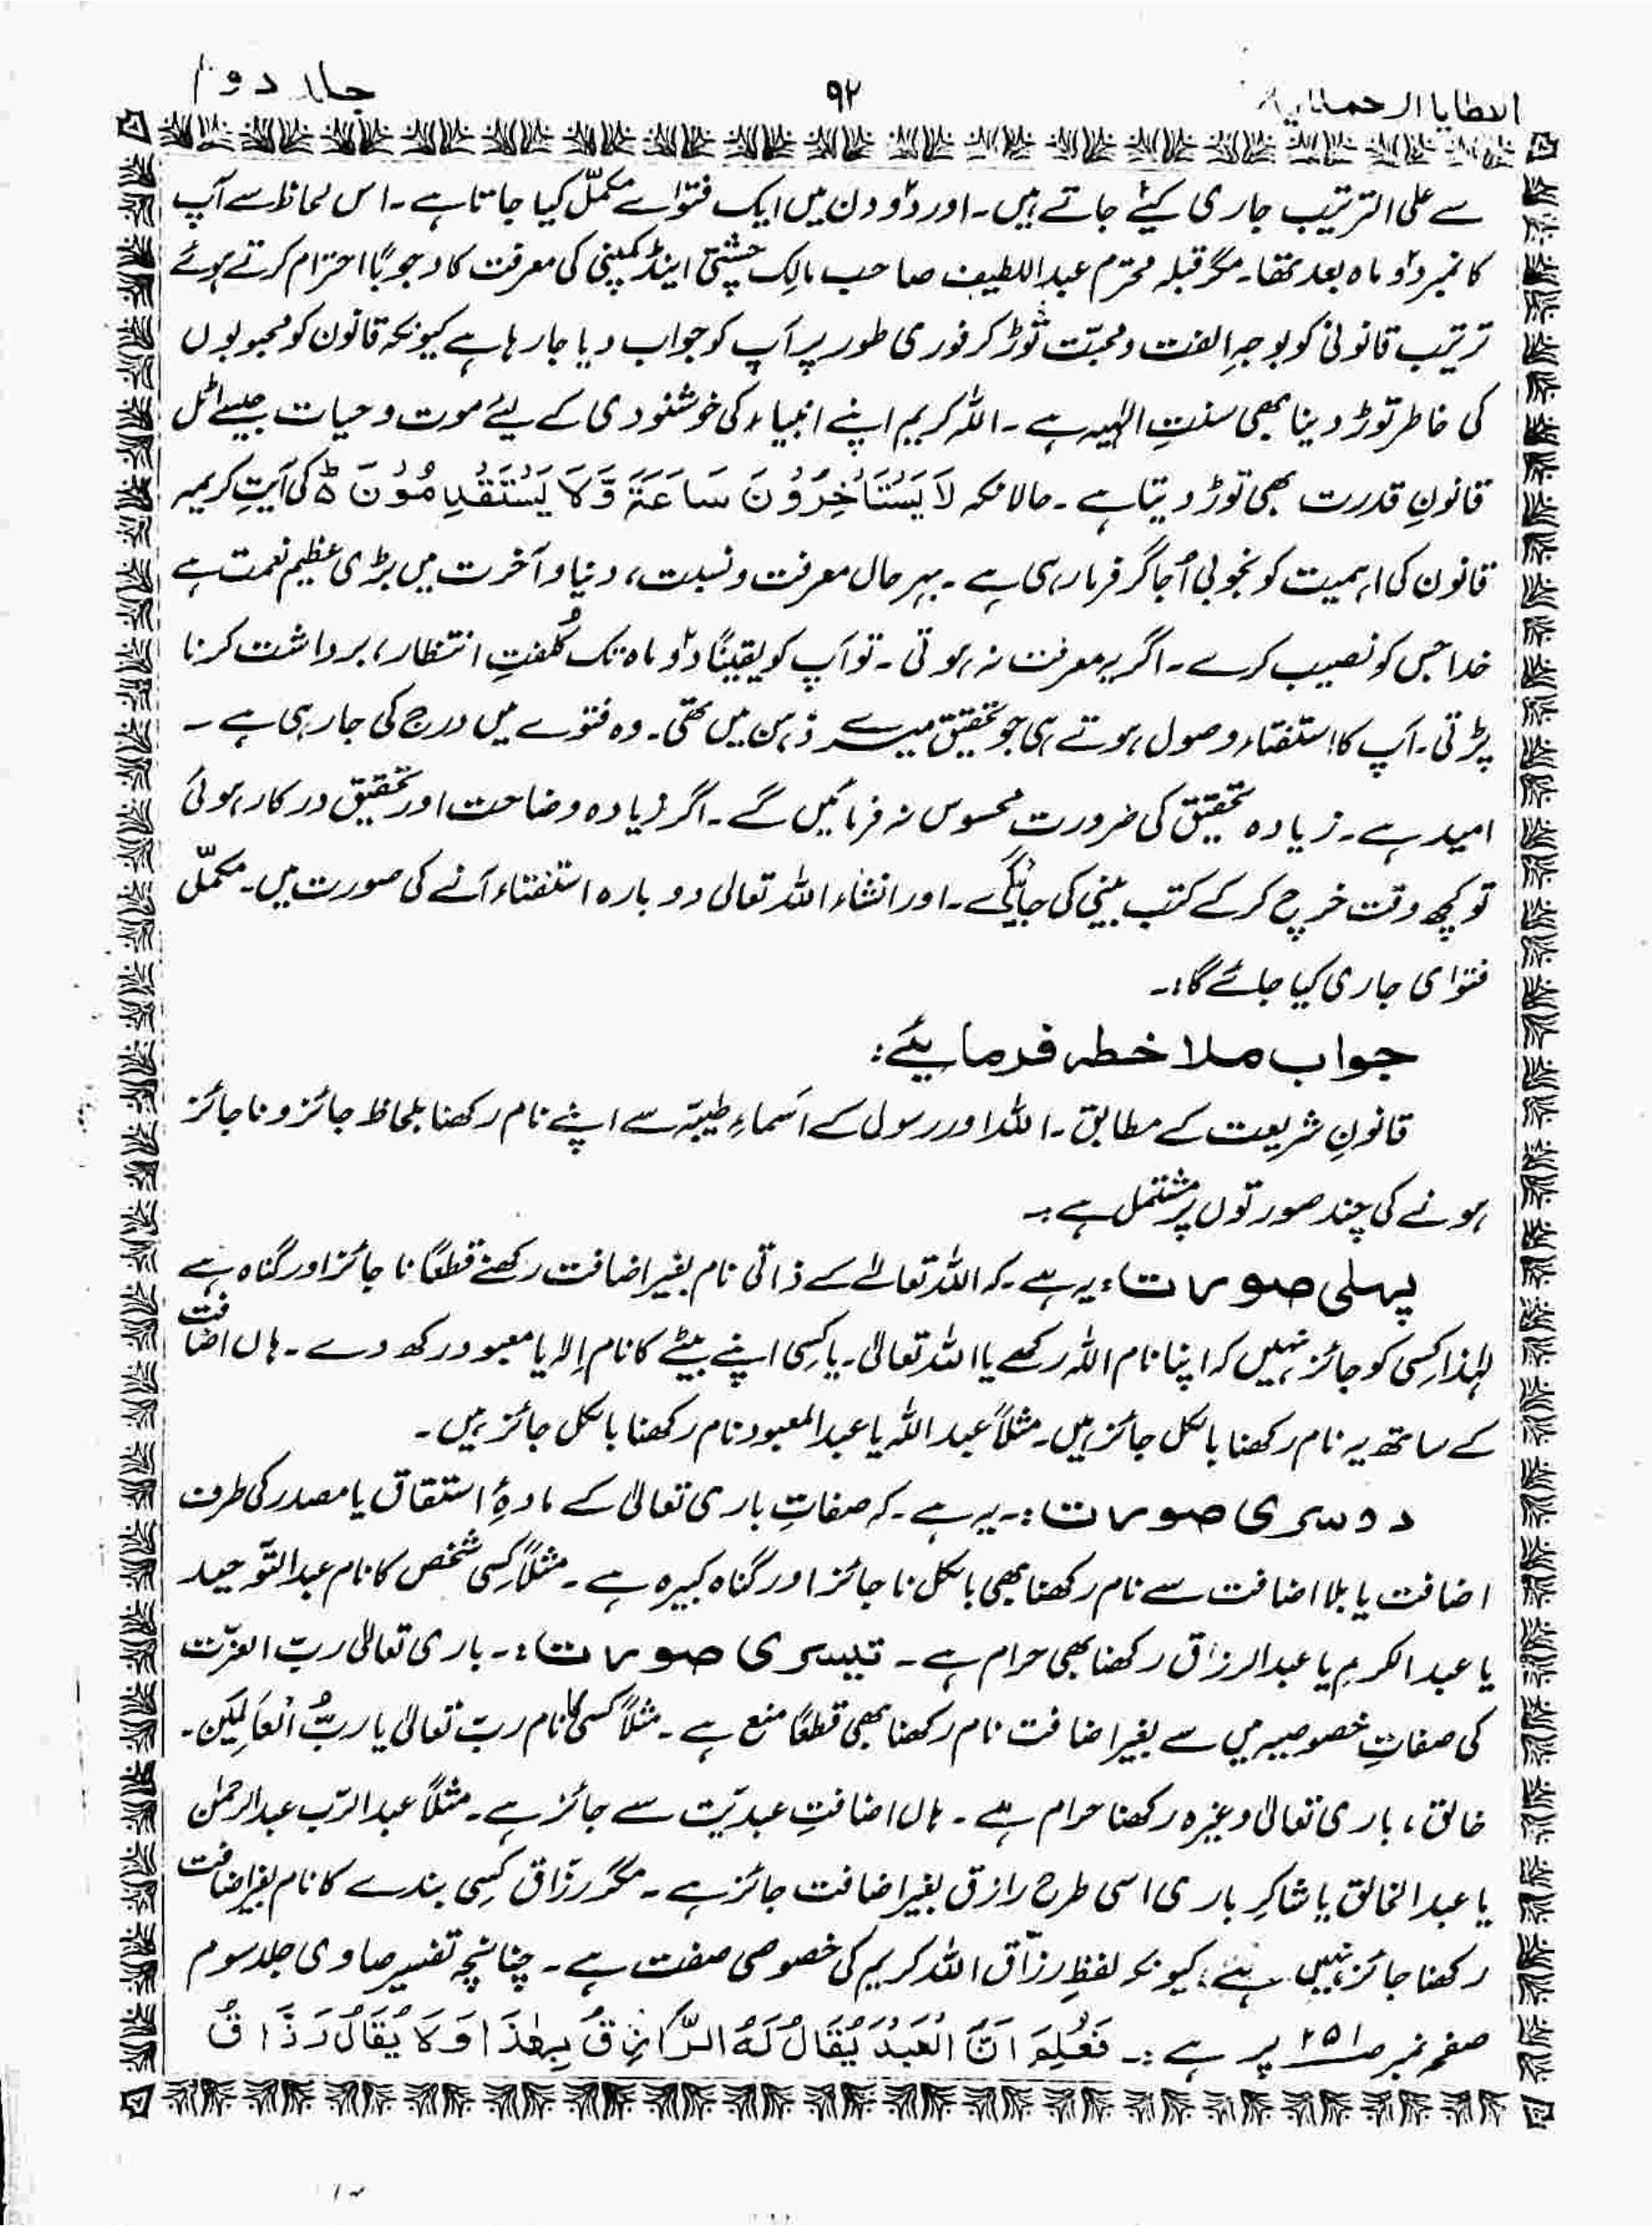 العطایا الرحمانیہ
۹۲
جلد دوم
سے علی الترتیب جاری کیئے جاتے ہیں۔ اور دو دن میں ایک فتوٰے مکمّل کیا جاتا ہے۔ اس لحاظ سے آپ
کا نمبر دو ماہ بعد تھا۔ مگر قبلہ محترم عبداللطیف صاحب مالِک چشتی اینڈ کمپنی کی معرفت کا وجوبًا احترام کرتے ہوئے
ترتیب قانونی کو بوجہِ الفت و محبّت توڑ کر فوری طور پر آپ کو جواب دیا جا رہا ہے کیونکہ قانون کو محبوبوں
کی خاطر توڑ دینا بھی سنتِ الٰہیہ ہے۔ اللہ کریم اپنے انبیاء کی خوشنودی کے لیئے موت و حیات جیسے اٹل
قانونِ قدرت بھی توڑ دیتا ہے۔ حالانکہ لَا یَسْتَأْخِرُوْنَ سَاعَۃً وَّلَا یَسْتَقْدِمُوْنَ ہ کی آیتِ کریمہ
قانون کی اہمیت کو بخوبی اُجاگر فرما رہی ہے۔ بہر حال معرفت و نسبت، دنیا و آخرت میں بڑی عظیم نعمت ہے
خدا جس کو نصیب کرے۔ اگر یہ معرفت نہ ہوتی۔ تو آپ کو یقینًا دو ماہ تک کُلفتِ انتظار، برداشت کرنا
پڑتی۔ آپ کا استفتاء وصول ہوتے ہی جو تحقیق میرے ذہن میں تھی۔ وہ فتوے میں درج کی جا رہی ہے۔
امید ہے۔ زیادہ تحقیق کی ضرورت محسوس نہ فرمائیں گے۔ اگر زیادہ وضاحت اور تحقیق درکار ہوئی
تو کچھ وقت خرچ کر کے کتب بینی کی جائیگی۔ اور انشاء اللہ تعالی دوبارہ استفتاء آنے کی صورت میں۔ مکمّل
فتوٰی جاری کیا جائے گا:۔
جواب ملاخطہ فرمایئے:
قانونِ شریعت کے مطابق۔ اللہ اور رسول کے اَسماءِ طیبّہ سے اپنے نام رکھنا بلحاظ جائز و ناجائز
ہونے کی چند صورتوں پر مشتمل ہے:۔
پہلی صورت: یہ ہے۔ کہ اللہ تعالےٰ کے ذاتی نام بغیر اضافت رکھنے قطعًا نا جائز اور گناہ ہے
لہٰذا کِسی کو جائز نہیں کہ اپنا نام اللہ رکھے یا اللہ تعالیٰ۔ یا کِسی اپنے بیٹے کا نام اِلہ یا معبود رکھ دے۔ ہاں اضافت
کے ساتھ یہ نام رکھنا بالکل جائز ہیں۔ مثلاً عبداللہ یا عبدالمعبود نام رکھنا بالکل جائز ہیں۔
دوسری صورت:۔ یہ ہے۔ کہ صفاتِ باری تعالیٰ کے مادہٴ استقاق یا مصدر کی طرف
اضافت یا بلا اضافت سے نام رکھنا بھی بالکل ناجائز اور گناہ کبیرہ ہے۔ مثلاً کِسی شخص کا نام عبدالتّوحید
یا عبدالکرمِ یا عبدالرزاق رکھنا بھی حرام ہے۔ تیسری صورت:۔ باری تعالیٰ ربّ العزّت
کی صفاتِ خصوصیہ میں سے بغیر اضافت نام رکھنا بھی قطعًا منع ہے۔ مثلاً کسی کا نام ربّ تعالیٰ یا ربُّ الْعَالَمِیْن۔
خالق، باری تعالیٰ وغیرہ رکھنا حرام ہے۔ ہاں اضافتِ عبدیّت سے جائز ہے۔ مثلاً عبدالرّب عبدالرحمٰن
یا عبدالخالق یا شاکرِ باری اسی طرح رازق بغیر اضافت جائز ہے۔ مگر رزّاق کِسی بندے کا نام بغیر اضافت
رکھنا جائز نہیں ہے، کیونکہ لفظِ رزّاق اللہ کریم کی خصوصی صفت ہے۔ چنانچہ تفسیر صاوی جلد سوم
صفحہ نمبر صـ ۲۵۱ پر ہے:۔ فَعُلِمَ اَنَّ الْعَبْدَ یُقَالُ لَہُ الرَّازِقُ بِھٰذَا وَلَا یُقَالُ رَزَّاقُ